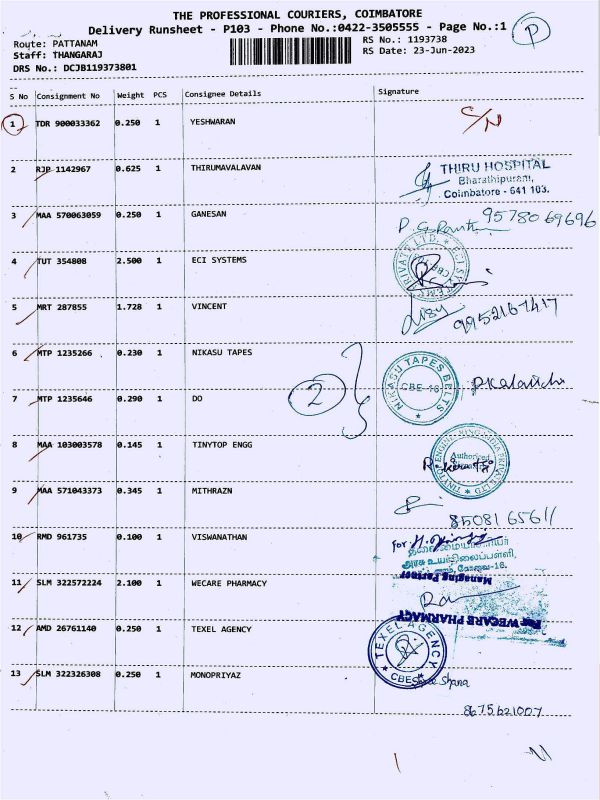 THE PROFESSIONAL COURIERS, COIMBATORE
Delivery Runsheet - P103 - Phone No.:0422-3505555 - Page No.:1
P
Route: PATTANAM
RS No.: 1193738
Staff: THANGARAJ
RS Date: 23-Jun-2023
DRS No.: DCJB119373801
S No Consignment No Weight PCS Consignee Details Signature
1 TDR 900033362 0.250 1 YESHWARAN S/N
2 RJP 1142967 0.625 1 THIRUMAVALAVAN
THIRU HOSPITAL
Bharathipuram,
Coimbatore - 641 103.
3 MAA 570063059 0.250 1 GANESAN 9578069696
4 TUT 354808 2.500 1 ECI SYSTEMS
5 MRT 287855 1.728 1 VINCENT 9952167417
6 MTP 1235266 0.230 1 NIKASU TAPES
NIKASU TAPES BELTS
CBE-16
2
7 MTP 1235646 0.290 1 DO
8 MAA 103003578 0.145 1 TINYTOP ENGG
9 MAA 571043373 0.345 1 MITHRAZN
8508165611
10 RMD 961735 0.100 1 VISWANATHAN
For
Managing Partner
11 SLM 322572224 2.100 1 WECARE PHARMACY
For WECARE PHARMACY
12 AMD 26761140 0.250 1 TEXEL AGENCY
TEXEL AGENCY
CBE
13 SLM 322326308 0.250 1 MONOPRIYAZ
8675621007